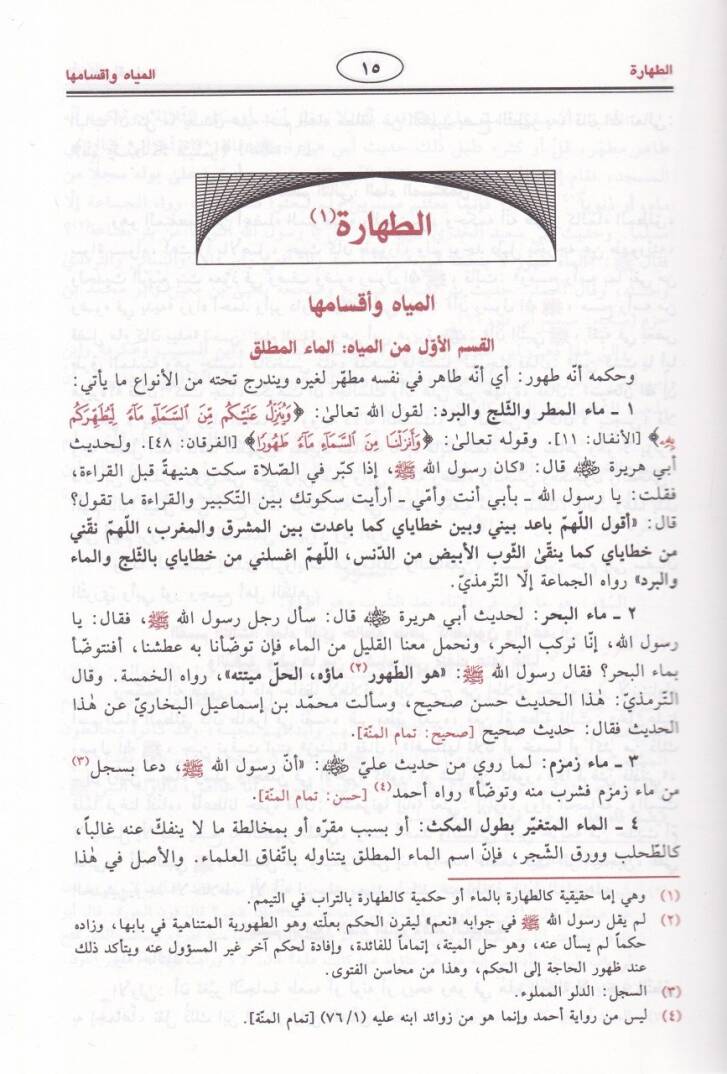 الطهارة
١٥
المياه وأقسامها
الطهارة(١)
المياه وأقسامها
القسم الأوّل من المياه: الماء المطلق
وحكمه أنّه طهور: أي أنّه طاهر في نفسه مطهّر لغيره ويندرج تحته من الأنواع ما يأتي:
١ ـ ماء المطر والثّلج والبرد: لقول الله تعالىٰ: ﴿وَيُنَزِّلُ عَلَيْكُم مِّنَ السَّمَآءِ مَآءً لِّيُطَهِّرَكُم
بِهِۦ﴾ [الأنفال: ١١]. وقوله تعالىٰ: ﴿وَأَنزَلْنَا مِنَ السَّمَآءِ مَآءً طَهُورًا﴾ [الفرقان: ٤٨]. ولحديث
أبي هريرة ﷺ قال: «كان رسول الله ﷺ، إذا كبّر في الصّلاة سكت هنيهةً قبل القراءة،
فقلت: يا رسول الله ـ بأبي أنت وأمّي ـ أرأيت سكوتك بين التّكبير والقراءة ما تقول؟
قال: «أقول اللّهمّ باعد بيني وبين خطاياي كما باعدت بين المشرق والمغرب، اللّهمّ نقّني
من خطاياي كما ينقّىٰ الثّوب الأبيض من الدّنس، اللّهمّ اغسلني من خطاياي بالثّلج والماء
والبرد» رواه الجماعة إلّا التّرمذيّ.
٢ ـ ماء البحر: لحديث أبي هريرة رضي الله عنه قال: سأل رجل رسول الله ﷺ، فقال: يا
رسول الله، إنّا نركب البحر، ونحمل معنا القليل من الماء فإن توضّأنا به عطشنا، أفنتوضّأ
بماء البحر؟ فقال رسول الله ﷺ: «هو الطّهور(٢) ماؤه، الحلّ ميتته»، رواه الخمسة. وقال
التّرمذيّ: هٰذا الحديث حسن صحيح، وسألت محمّد بن إسماعيل البخاريّ عن هٰذا
الحديث فقال: حديث صحيح [صحيح: تمام المنّة].
٣ ـ ماء زمزم: لما روي من حديث عليّ رضي الله عنه: «أنّ رسول الله ﷺ، دعا بسجل(٣)
من ماء زمزم فشرب منه وتوضّأ» رواه أحمد(٤) [حسن: تمام المنّة].
٤ ـ الماء المتغيّر بطول المكث: أو بسبب مقرّه أو بمخالطة ما لا ينفكّ عنه غالباً،
كالطّحلب وورق الشّجر، فإنّ اسم الماء المطلق يتناوله باتّفاق العلماء. والأصل في هٰذا
(١) وهي إما حقيقية كالطهارة بالماء أو حكمية كالطهارة بالتراب في التيمم.
(٢) لم يقل رسول الله ﷺ في جوابه «نعم» ليقرن الحكم بعلّته وهو الطهورية المتناهية في بابها، وزاده
حكماً لم يسأل عنه، وهو حل الميتة، إتماماً للفائدة، وإفادة لحكم آخر غير المسؤول عنه ويتأكد ذلك
عند ظهور الحاجة إلى الحكم، وهذا من محاسن الفتوى.
(٣) السجل: الدلو المملوء.
(٤) ليس من رواية أحمد وإنما هو من زوائد ابنه عليه (٧٦/١) [تمام المنّة].